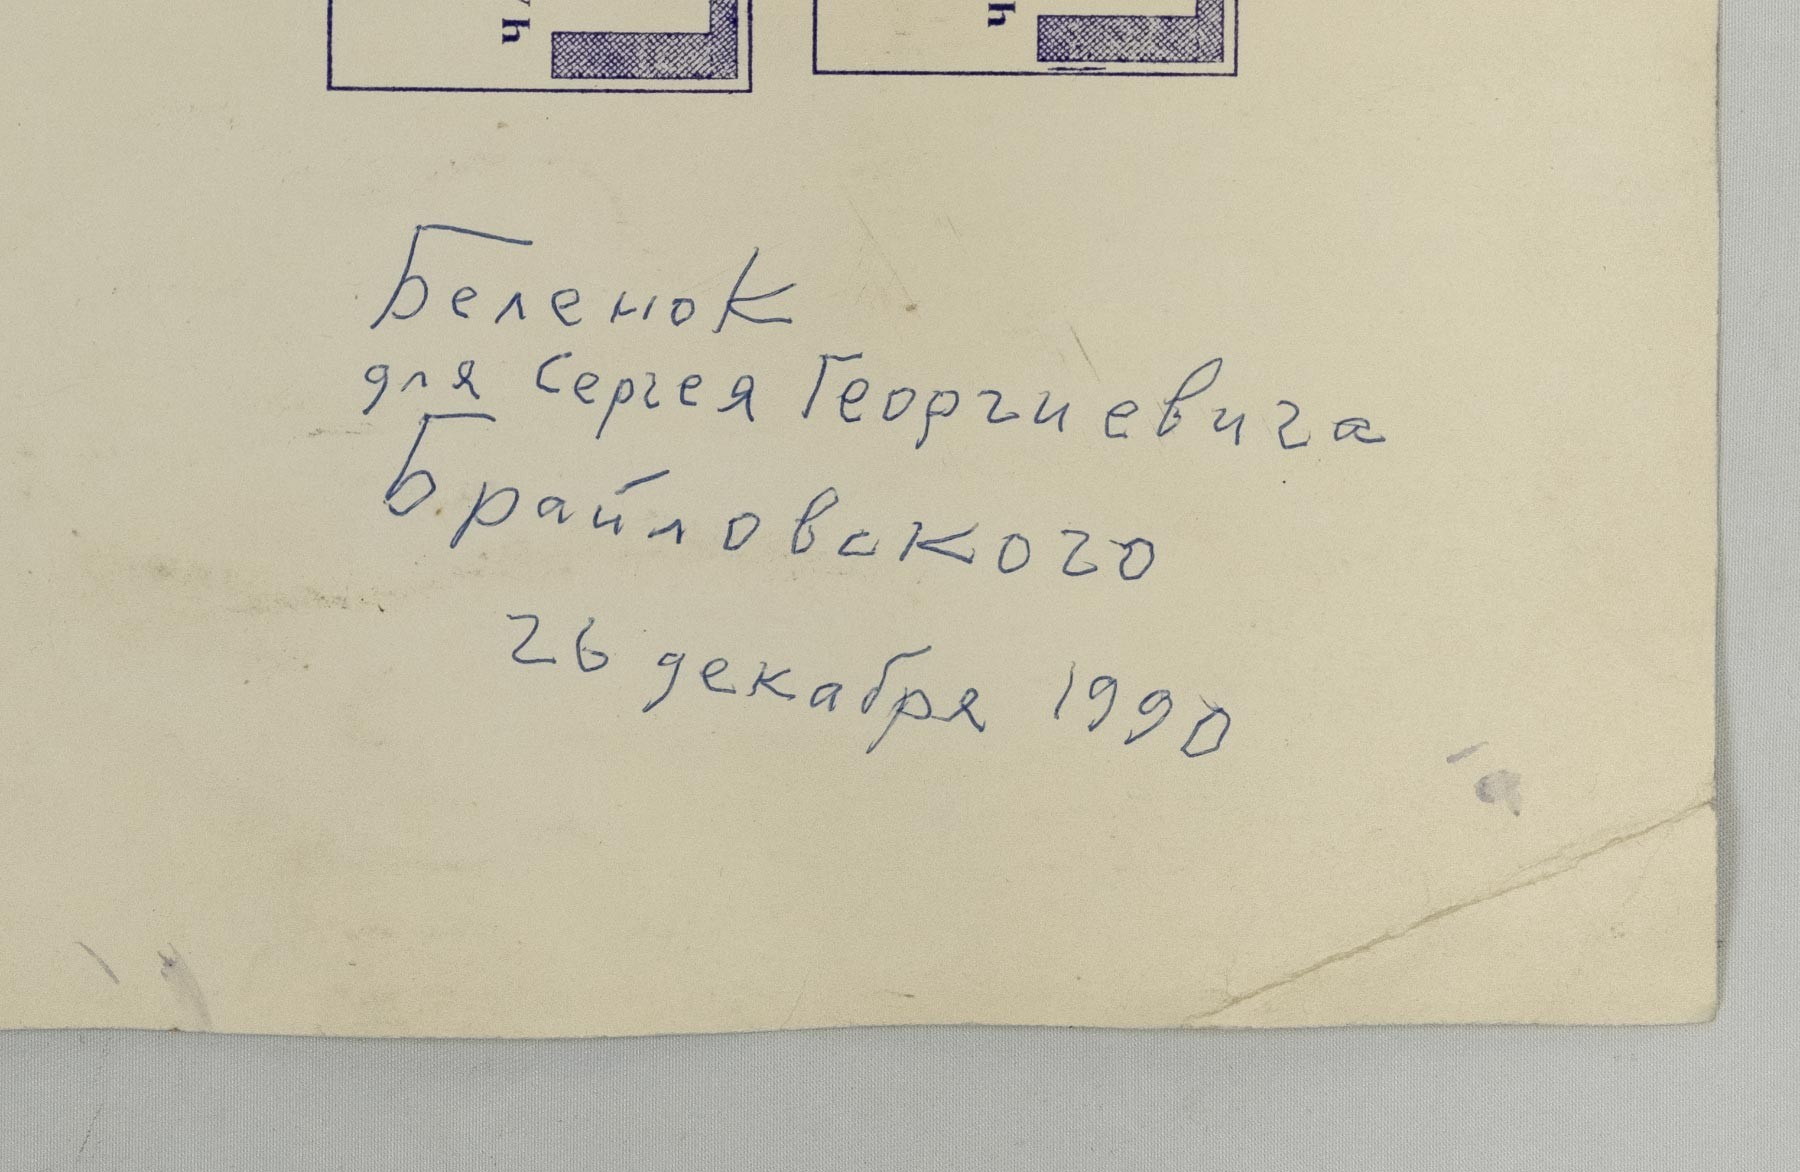 Беленок
для Сергея Георгиевича
Брайловского
26 декабря 1990